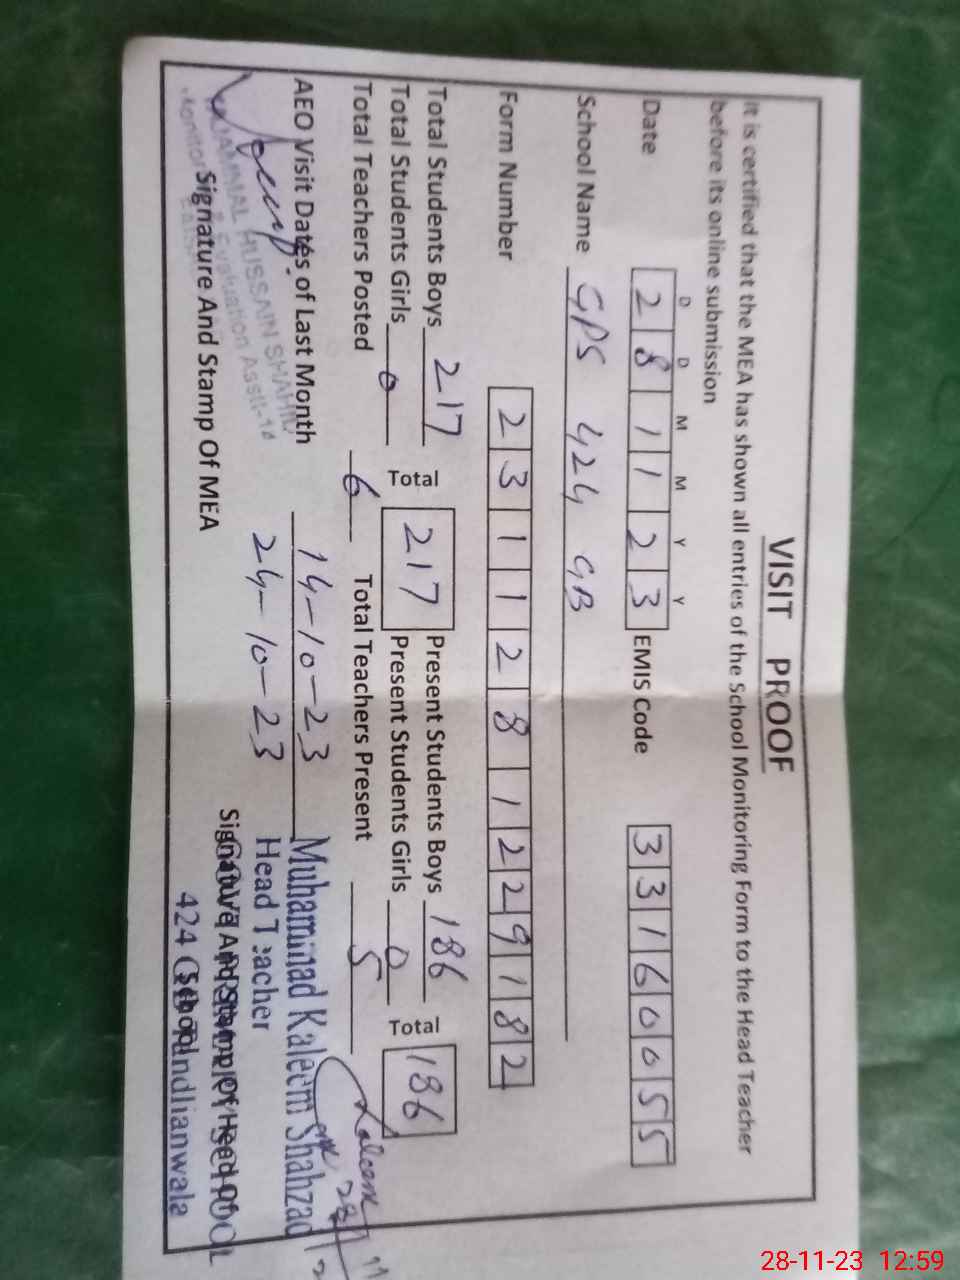 VISIT PROOF
It is certified that the MEA has shown all entries of the School Monitoring Form to the Head Teacher
before its online submission
D D M M Y Y
Date 2 8 1 1 2 3 EMIS Code 3 3 1 6 0 0 5 5
School Name GPS 424 GB
Form Number 2 3 1 1 2 8 1 2 2 9 1 8 2
Total Students Boys 217 Present Students Boys 186
Total 217 Total 186
Total Students Girls 0 Present Students Girls 0
Total Teachers Posted 6 Total Teachers Present 5
AEO Visit Dates of Last Month 14-10-23
24-10-23
Muhammad Kaleem Shahzad
Head Teacher
Kaleem
HUSSAIN SHAHID
Evaluation Asstt-14
Signature And Stamp Of MEA
Signature And Stamp Of Head Of
School
424 Tandlianwala
28-11-23 12:59